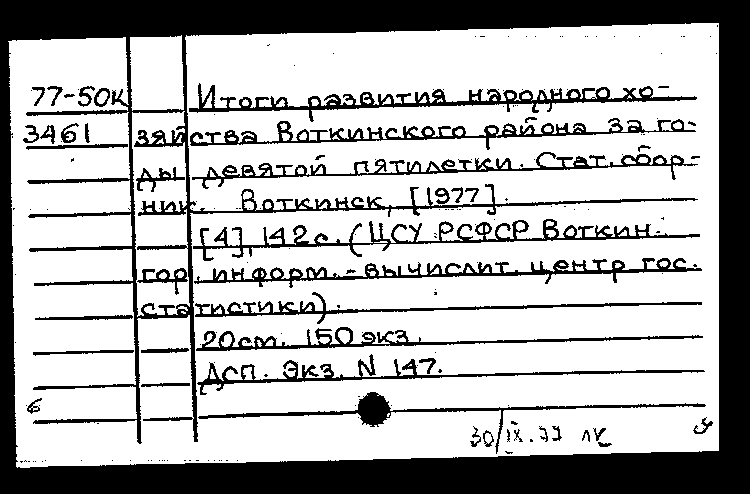 77-50к Итоги развития народного хо-
3461 зяйства Воткинского района за го-
ды девятой пятилетки. Стат. сбор-
ник. Воткинск, [1977].
[4], 142 с. (ЦСУ РСФСР Воткин.
гор. информ.-вычислит. центр гос.
статистики).
20 см. 150 экз.
Дсп. Экз. N 147.
30/IX.77